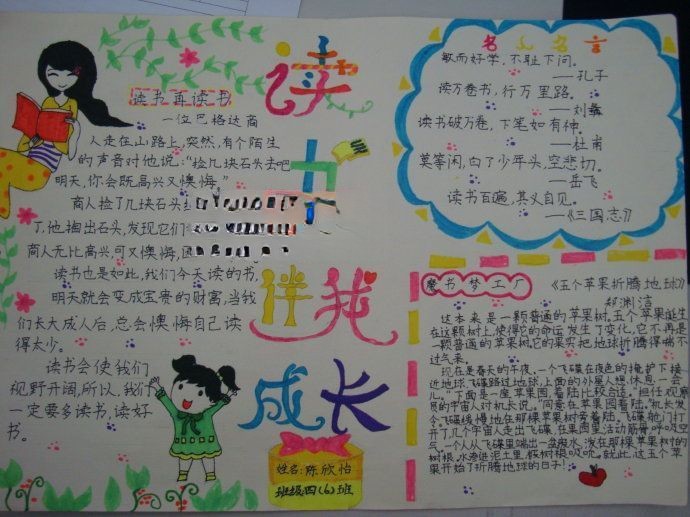 读书伴我成长
读书再读书
一位巴格达商
人走在山路上,突然,有个陌生
的声音对他说:“捡几块石头去吧
明天,你会既高兴又懊悔”
商人捡了几块石头
了,他掏出石头,发现它们
商人无比高兴,可又懊悔,
读书也是如此,我们今天读的书,
明天就会变成宝贵的财富,当我
们长大成人后,总会懊悔自己读
得太少。
读书会使我们
视野开阔,所以,我们
一定要多读书,读好
书。
姓名:陈欣怡
班级:四(6)班
名人名言
敏而好学,不耻下问。
——孔子
读万卷书,行万里路。
——刘彝
读书破万卷,下笔如有神。
——杜甫
莫等闲,白了少年头,空悲切。
——岳飞
读书百遍,其义自见。
——《三国志》
魔书梦工厂
《五个苹果折腾地球》
郑渊洁
这本来是一颗普通的苹果树,五个苹果诞生
在这颗树上,使得它的命运发生了变化,它不再是
一颗普通的苹果树,它的果实把地球折腾得喘不
过气来。
现在是春天的午夜,一个飞碟在夜色的掩护下接
近地球,飞碟路过地球,上面的外星人想休息一会
儿。“下面是一座苹果园,着陆比较合适。”担任观察
员的宇宙人对机长说,“同意在苹果园着陆。”机长发
令,飞碟缓慢地在那棵苹果树旁着陆,飞碟舱门打
开了,几个宇宙人走出飞碟,在果园里活动筋骨,呼吸空
气,一个人从飞碟里端出一盆废水,泼在那棵苹果树的
树根,水渗进泥土里,被树根吸吮。就此,这五个苹
果开始了折腾地球的日子!